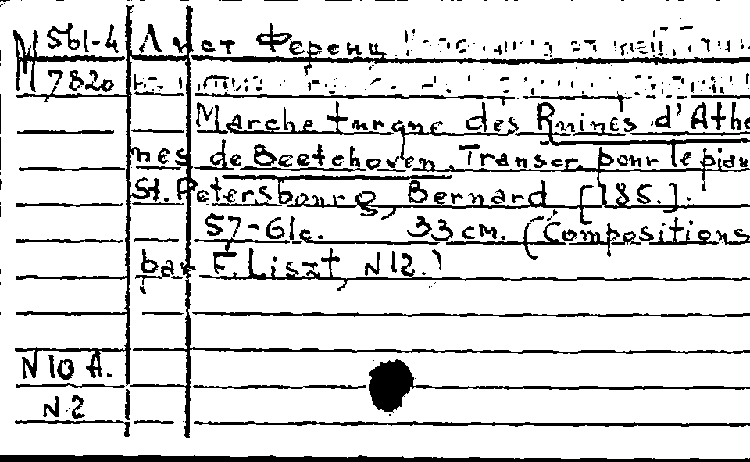 М 561-4 Лист Ференц
7820
Marche turque des Ruines d'Athe
nes de Beetchoven. Transcr. pour le pian
St. Petersbourg, Bernard, [185.].
57-61c. 33 cm. (Compositions
par F. Liszt, N12.)
N 10 A.
N 2